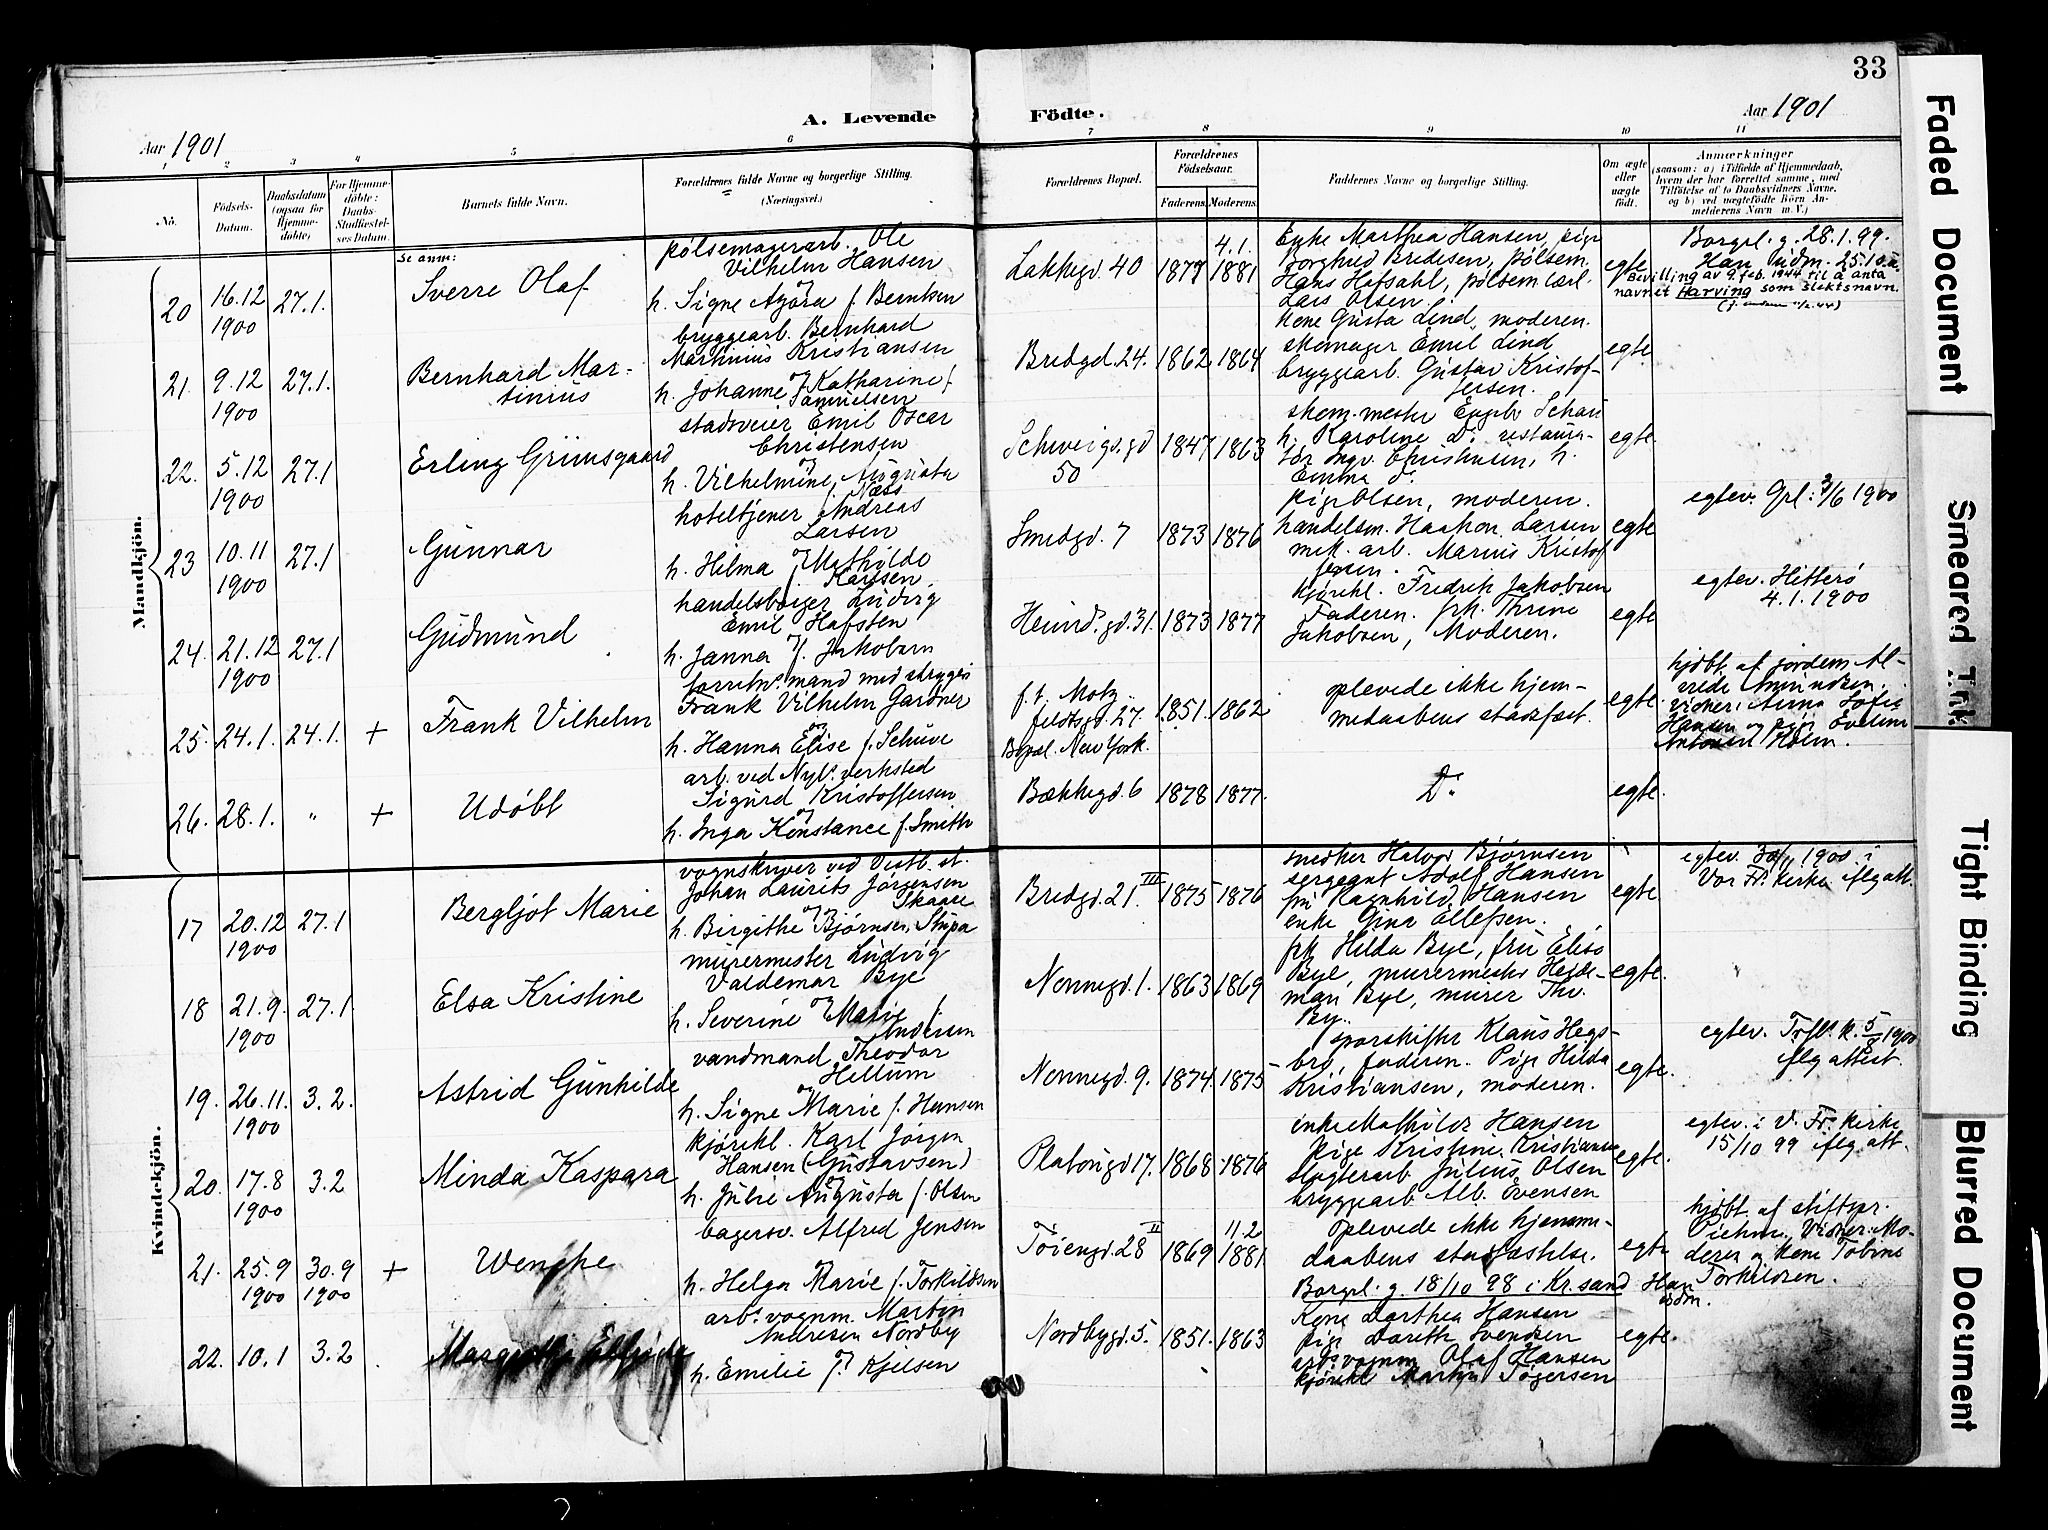 33
A. Levende Födte.
Aar 1901
Aar 1901
1 2 3 4 5 6 7 8 9 10 11
No.
Födsels-Datum.
Daabsdatum (ogsaa for Hjemmedöbte)
For Hjemmedöbte: Daabs-Stadfæstelses Datum.
Barnets fulde Navn.
Forældrenes fulde Navne og borgerlige Stilling. (Næringsvei.)
Forældrenes Bopæl.
Forældrenes Födselsaar.
Faderens. Moderens.
Faddernes Navne og borgerlige Stilling.
Om ægte eller uægte födt.
Anmærkninger
(saasom: a) i Tilfælde af Hjemmedaab, hvem der har forrettet samme, med Tilföielse af to Daabsvidners Navne, og b) ved uægtefödte Börn Anmelderens Navn m. V.)
Mandkjön.
20 16.12 1900 27.1.
Se anm:
Sverre Olaf
pölsemagerarb. Ole
Vilhelm Hansen
og
h. Signe Agöra f. Berntsen
Lakkegd. 40 1877 4.1. 1881
Enke Marthea Hansen, pige
Borghild Bredesen, pölsem.
Hans Hofsahl, pölsem.lærl.
Lars Olsen
egte
Borgel. g. 28.1.99.
Han udm. 25.10.
Bevilling av 9. feb. 1944 til å anta
navnet Harving som slektsnavn.
21. 9.12 1900 27.1.
Bernhard Mar-
tinius
bryggearb. Bernhard
Martinius Kristiansen
og
h. Johanne Katharine f.
Samuelsen
Bredgd. 24. 1862 1864
Kone Gusta Lind, moderen.
skomager Emil Lind
bryggearb. Gustav Kristof-
fersen.
egte
22. 5.12 1900 27.1
Erling Grimsgaard
stadsveier Emil Oscar
Christensen
og
h. Vilhelmine Augusta
f. Næss
Schweigs.gd 50 1847 1863
skom.mester Engebr. Schau
h. Karoline Do restaura-
tör Ingv. Christensen, h.
Emma do
egte
23 10.11 1900 27.1
Gunnar
hoteltjener Andreas
Larsen
og
h. Hilma Mathilde
f. Karlsen.
Smedgd. 7 1873 1876
pige Olsen, moderen.
handelsm. Haakon Larsen
mek. arb. Marius Kristof
fersen.
egte
egtev. Grl: 3/6 1900
24. 21.12 1900 27.1
Gudmund
handelsborger Ludvig
Emil Hafsten
og
h. Janna f. Jakobsen
Heimd.gd. 31. 1873 1877
kjörekl. Fredrik Jakobsen
Faderen. frk. Thrine
Jakobsen, Moderen.
egte
egtev. Hitterö
4.1.1900
25. 24.1. 24.1. +
Frank Vilhelm
forretn.mand med stryges
Frank Vilhelm Gardner
og
h. Hanna Elise f. Schuve
f. t. Motz
feldtsgd. 27.
Bopæl. New York.
1851. 1862
oplevede ikke hjem-
medaabens stadfæst.
egte.
hjdbt. af jordem. Al-
vilde Amundsen.
vidner: Anna Sofie
Hansen og pige Eveline
Antonsen Holm.
26. 28.1. " +
Udöbt
arb. ved Nyl. verksted
Sigurd Kristoffersen
og
h. Inga Konstance f. Smith
Bækkegd. 6 1878 1877.
Do
egte.
Kvindekjön.
17 20.12 1900 27.1
Bergljot Marie
vognskriver ved Vestb. st.
Johan Laurits Jörgensen
Skaare
og
h. Birgithe Bjørnsen, Stupa
Bredgd. 21. III 1875 1876
snedker Halvor Bjørnsen
sergeant Adolf Hansen
fru Ragnhild Hansen
enke Gina Ellefsen.
egte
egtev. 30/11 1900 i
Vor Fr. kirke iflg att.
18 21.9. 1900 27.1.
Elsa Kristine
murermester Ludvig
Valdemar Bye
og
h. Severine Marie f.
Andersen
Nonnegd. 1. 1863 1869
frk. Hilda Bye, fru Elise
Bye, murermester Heide-
man Bye, murer Thv.
By.
egte.
19. 26.11. 1900 3.2.
Astrid Gunhilde
vandmand Theodor
Hellum
og
h. Signe Marie f. Hansen
Nonnegd. 9. 1874. 1875
sporskifter Klaus Hegs-
bro, faderen. Pige Hilda
Kristiansen, moderen.
egte.
egtev. Trefl. k. 5/8 1900
iflg attest.
20. 17.8 1900 3.2
Minda Kaspara
kjörekl. Karl Jörgen
Hansen (Gustavsen)
og
h. Julie Augusta f. Olsen
Platousgd 17. 1868 1876
enke Mathilde Hansen
Pige Kristine Kristiansen
slagterarb. Julius Olsen
bryggearb. Alb. Evensen
egte.
egtev. i V. Fr. kirke
15/10 99 iflg att.
21. 25.9 1900 30.9 1900 +
Wenche
bagersv. Alfred Jensen
og
h. Helga Marie f. Torkildsen
Töiengd. 28 II 1869 11.2 1881.
oplevede ikke hjemme-
daabens stadfæstelse.
Borgel. g. 18/10 98 i Kr.sand Han
udm.
egte
hjdbt. af stiftspr.
Piehme, Vidner: Mo-
deren og kone Tobine
Torkildsen.
22. 10.1 3.2
arb. vognm. Martin
Nordby
og
h. Emilie f. Kjelsen
Nordbygd. 5. 1851. 1863
Kone Dorthea Hansen
pige Dorith Svendsen
arb. vognm Olaf Hansen
kjörekl Martin Tögersen
egte.
Faded Document
Smeared Ink
Tight Binding
Blurred Document